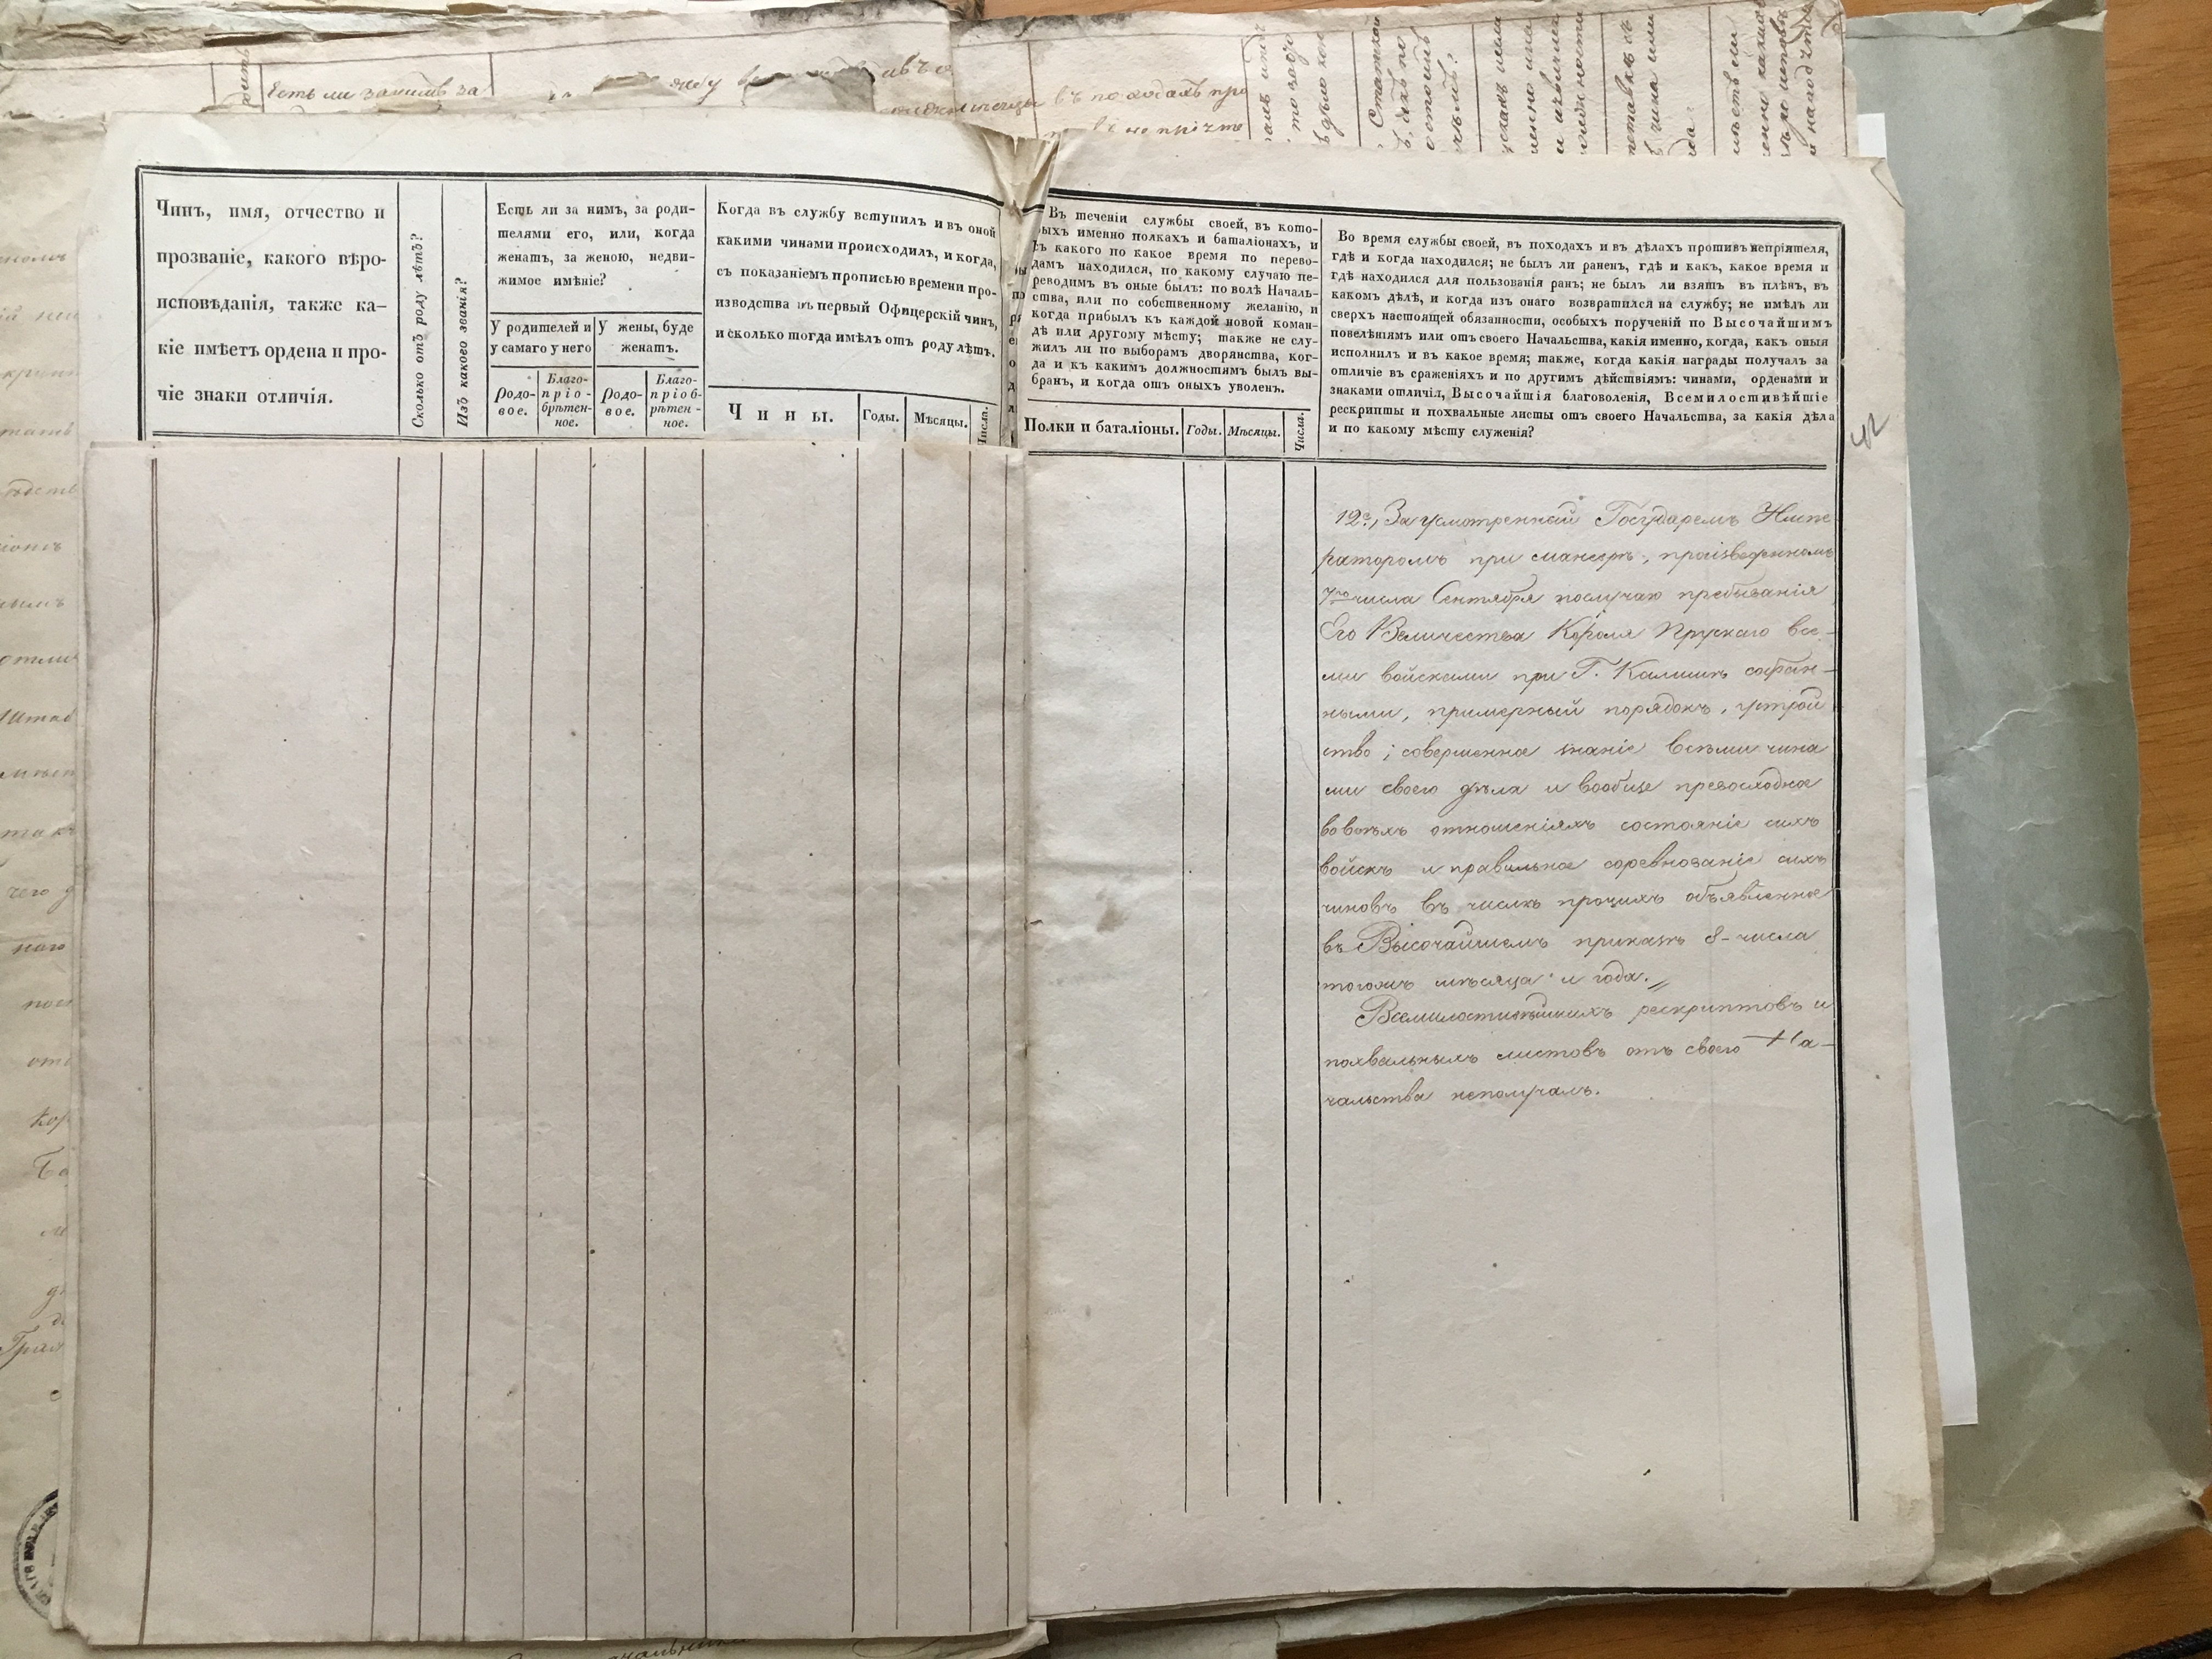 Есть ли за нимъ за
въ походахъ про
Чинъ, имя, отчество и
прозваніе, какого вѣро-
исповѣданія, также ка-
кіе имѣетъ ордена и про-
чіе знаки отличія.
Сколько отъ роду лѣтъ?
Изъ какого званія?
Есть ли за нимъ, за роди-
телями его, или, когда
женатъ, за женою, недви-
жимое имѣніе?
У родителей и
у самаго у него
У жены, буде
женатъ.
Родо-
вое.
Благо-
прio-
брѣтен-
ное.
Родо-
вое.
Благо-
пріоб-
рѣтен-
ное.
Когда въ службу вступилъ и въ оной
какими чинами происходилъ, и когда,
съ показаніемъ прописью времени про-
изводства въ первый Офицерскій чинъ,
и сколько тогда имѣлъ отъ роду лѣтъ.
Чины.
Годы.
Мѣсяцы.
Числа.
Въ теченіи службы своей, въ кото-
рыхъ именно полкахъ и баталіонахъ, и
съ какого по какое время по перево-
дамъ находился, по какому случаю пе-
реводимъ въ оные былъ: по волѣ Началь-
ства, или по собственному желанію, и
когда прибылъ къ каждой новой коман-
дѣ или другому мѣсту; также не слу-
жилъ ли по выборамъ дворянства, ког-
да и къ какимъ должностямъ былъ вы-
бранъ, и когда отъ оныхъ уволенъ.
Полки и баталіоны.
Годы.
Мѣсяцы.
Числа.
Во время службы своей, въ походахъ и въ дѣлахъ противъ непріятеля,
гдѣ и когда находился; не былъ ли раненъ, гдѣ и какъ, какое время и
гдѣ находился для пользованія ранъ; не былъ ли взятъ въ плѣнъ, въ
какомъ дѣлѣ, и когда изъ онаго возвратился на службу; не имѣлъ ли
сверхъ настоящей обязанности, особыхъ порученій по Высочайшимъ
повелѣніямъ или отъ своего Начальства, какія именно, когда, какъ оныя
исполнилъ и въ какое время; также, когда какія награды получалъ за
отличіе въ сраженіяхъ и по другимъ дѣйствіямъ: чинами, орденами и
знаками отличія, Высочайшія благоволенія, Всемилостивѣйшіе
рескрипты и похвальные листы отъ своего Начальства, за какія дѣла
и по какому мѣсту служенія?
42
12е, За усмотренный Государемъ Импе
раторомъ при маневрѣ, произведенномъ
7го числа Сентября послучаю пребыванія
Его Величества Короля Прускаго все-
ми войсками при Г. Калишѣ собран-
ными, примерный порядокъ, устрой
ство; совершенное знаніе всѣми чина
ми своего дѣла и вообще превосходное
вовсѣхъ отношеніяхъ состояніе сихъ
войскъ и правильное соревнованіе сихъ
чиновъ въ числѣ прочихъ объявленное
въ Высочайшемъ приказѣ 8-числа
тогожъ мѣсяца и года.
Всемилостивѣйшихъ рескриптовъ и
похвальныхъ листовъ отъ своего На-
чальства неполучалъ.